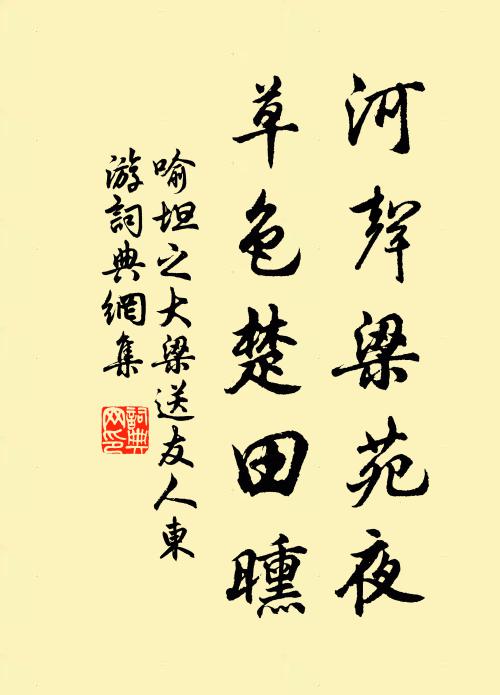 河聲梁苑夜
草色楚田曛
喻坦之大梁送友人東
游詞典網集
詞典
网印